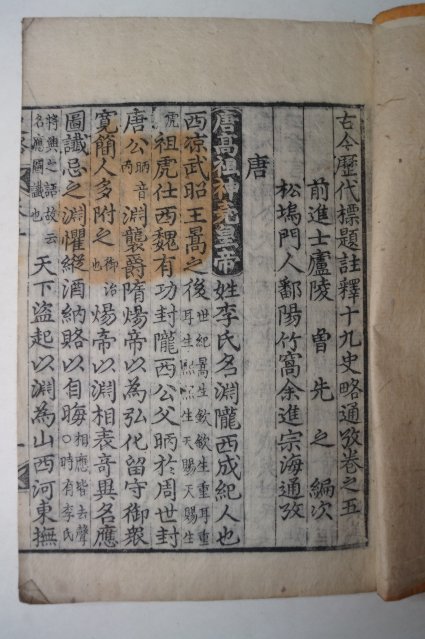 古今歷代標題註釋十九史略通攷卷之五
前進士廬陵 曾先之 編次
松塢門人鄱陽竹窩余進宗海通攷
唐
唐高祖神堯皇帝 姓李氏名淵隴西成紀人也
西凉武昭王暠之後 世紀暠生歆歆生重耳重耳生熈熈生天賜天賜生
虎 祖虎仕西魏有功封隴西公父昞於周世封
唐公 昞音丙 淵襲爵隋煬帝以為弘化留守御衆
寬簡人多附之 御治也 煬帝以淵相表奇異名應
圖讖忌之淵懼縱酒納賂以自晦 相應皆去聲○時有李氏
將興之語故云名應圖讖也 天下盗起以淵為山西河東撫